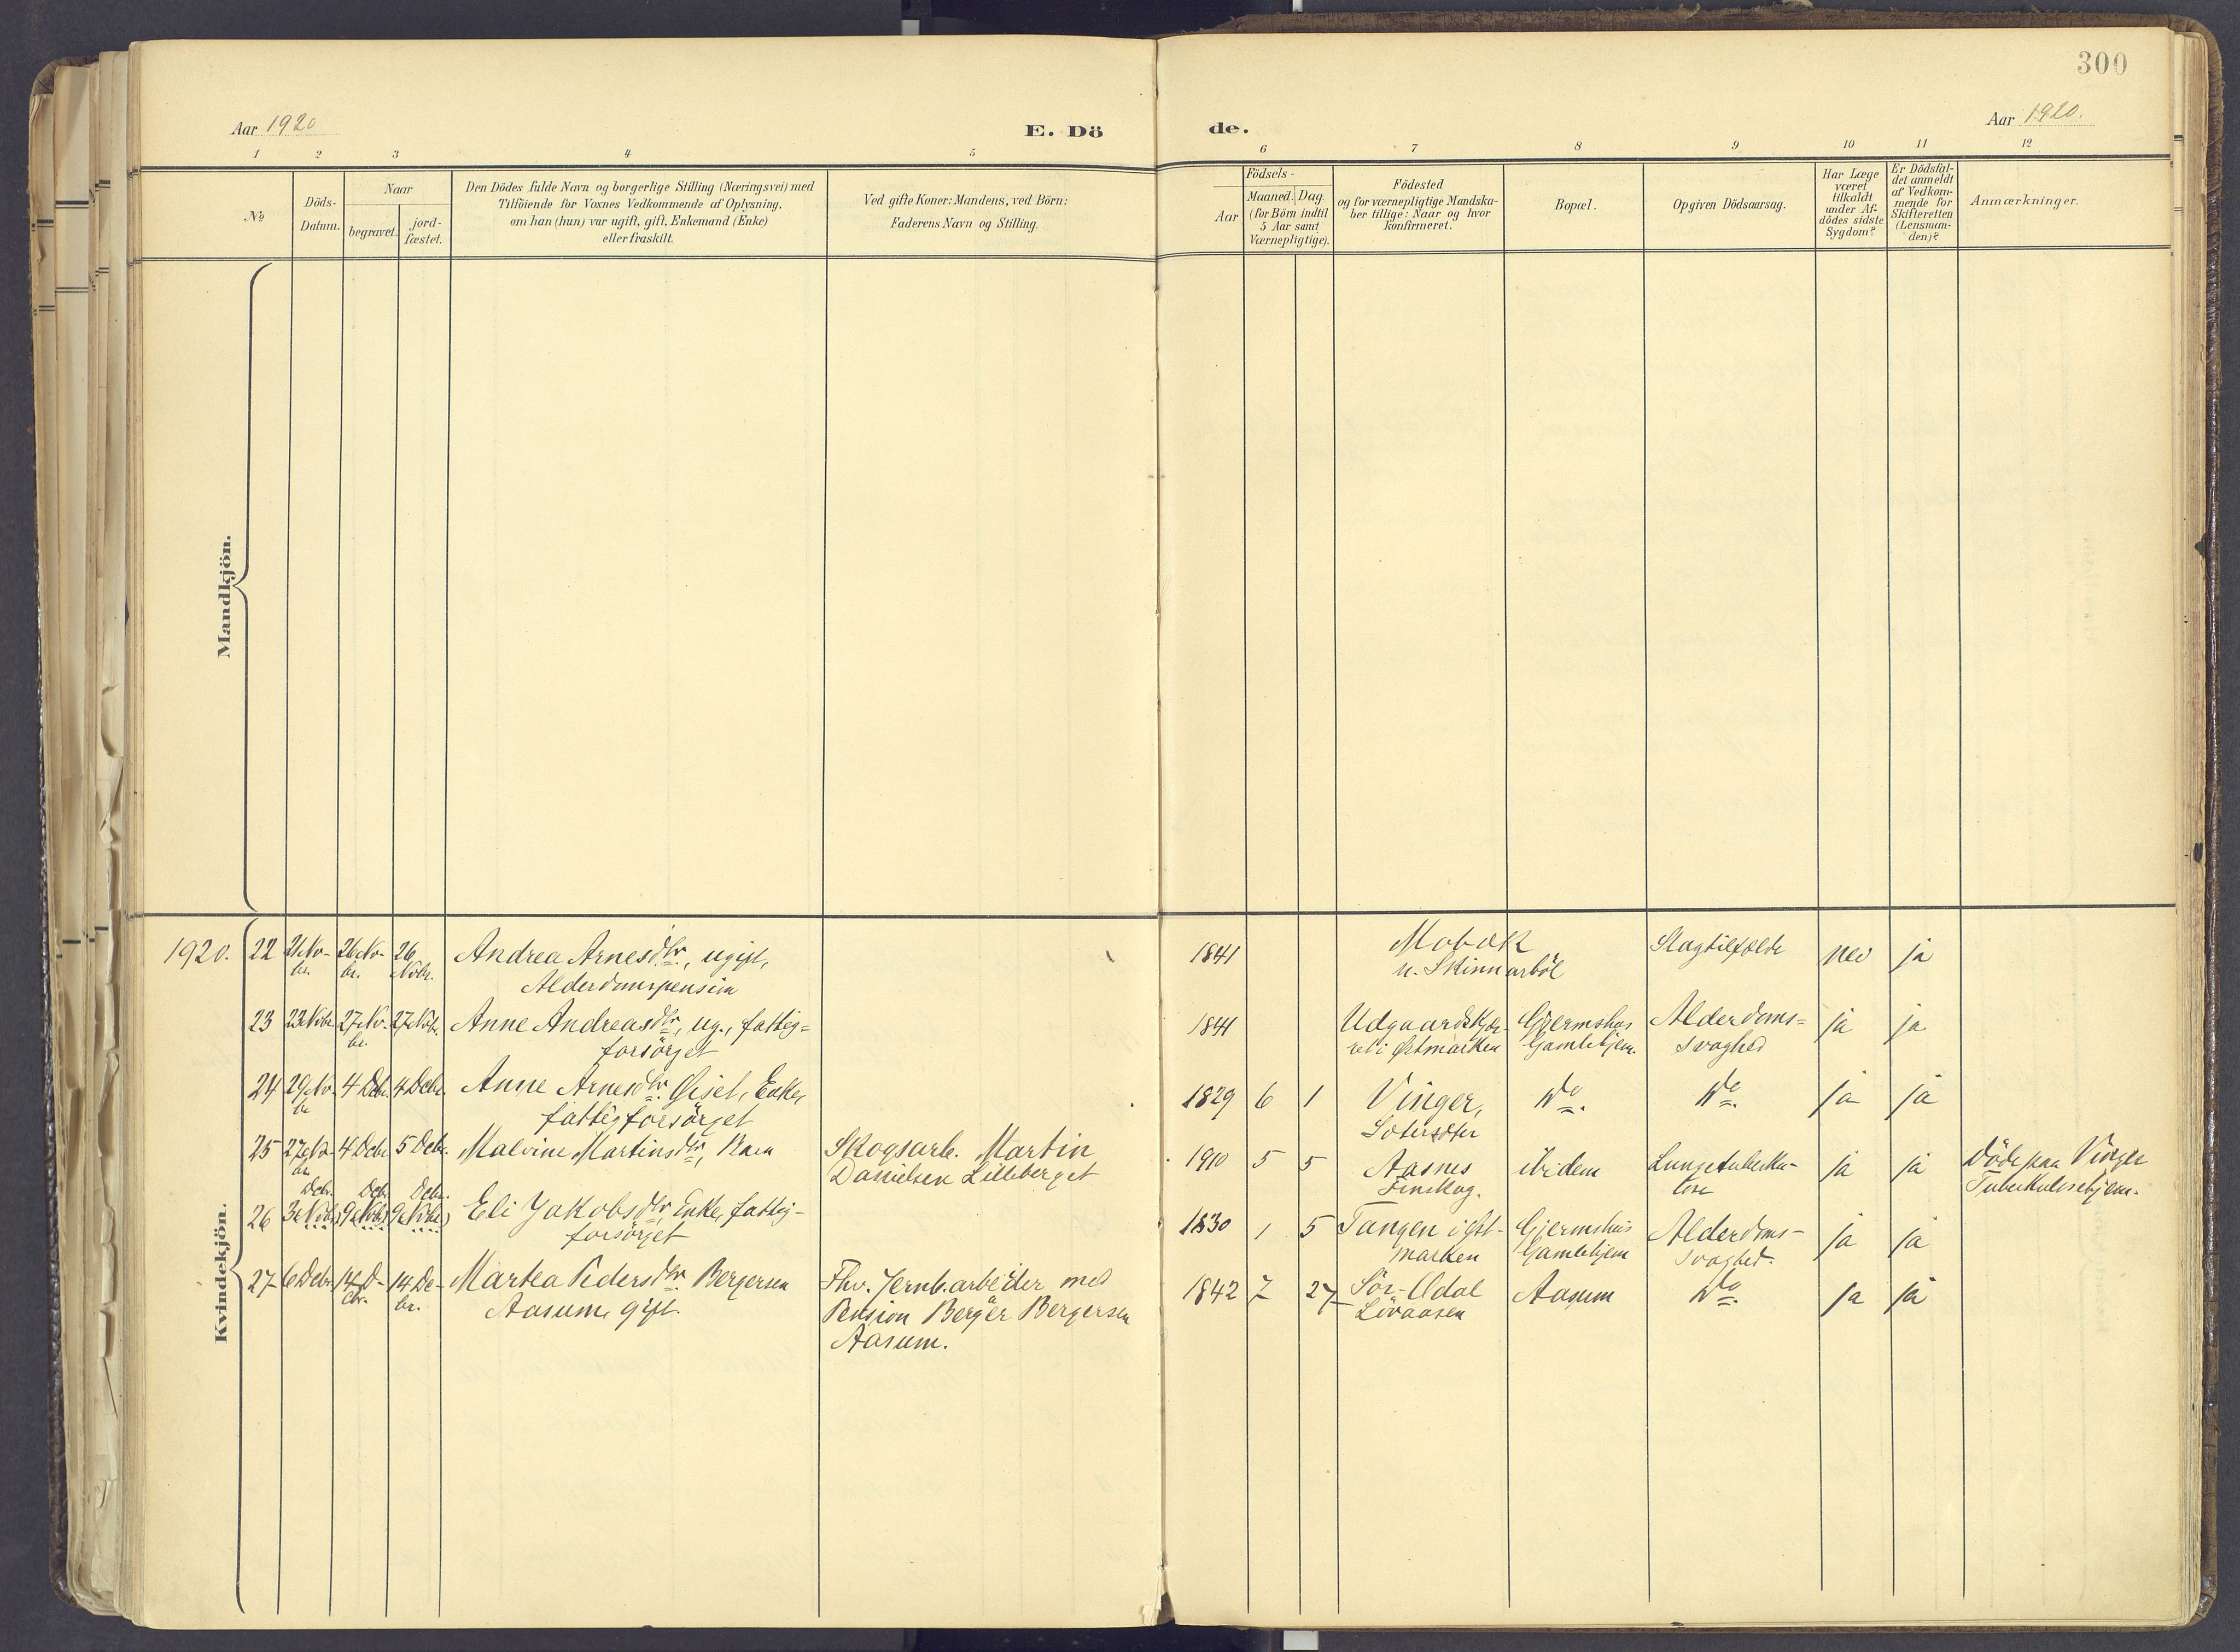 300
Aar 1920
E. Dö
de.
Aar 1920.
1 2 3 4 5 6 7 8 9 10 11 12
№
Döds-
Datum.
Naar
begravet.
jord-
fæstet.
Den Dödes fulde Navn og borgerlige Stilling (Næringsvei) med
Tilföiende for Voxnes Vedkommende af Oplysning,
om han (hun) var ugift, gift, Enkemand (Enke)
eller fraskilt.
Ved gifte Koner: Mandens, ved Börn:
Faderens Navn og Stilling.
Födsels-
Aar
Maaned. Dag.
(for Börn indtil
5 Aar samt
Værnepligtige).
Födested
og for værnepligtige Mandska-
ber tillige: Naar og hvor
konfirmeret.
Bopæl.
Opgiven Dödsaarsag.
Har Læge
været
tilkaldt
under Af-
dödes sidste
Sygdom?
Er Dödsfal-
det anmeldt
af Vedkom-
mende for
Skifteretten
(Lensman-
den)?
Anmærkninger.
Mandkjön.
Kvindekjön.
1920. 22 21 No-
br.
26 No-
br.
26
Nobr.
Andrea Arnesdtr., ugift,
Alderdomspension
1841
Mobæk
u. Skinnarböl
Slagtilfælde
nei
ja
23 23 Nobr. 27 No-
br.
27 Nobr.
Anne Andreasdtr, ug., fattig=
forsörget
1841
Udgaardskjer-
ret i Østmarken
Gjermshus
Gamlehjem.
Alderdoms=
svaghed
ja
ja
24 29 No-
br
4 Debr. 4 Debr.
Anne Arnesdtr. Gisel, Enke,
fattigforsörget
1829 6 1
Vinger,
Do.
Do.
ja
ja
25 27 No-
br.
4 Debr 5 Debr.
Malvine Martinsdtr, Barn
Skogsarb. Martin
Danielsen Lilleberget
1910 5 5
Aasnes
Finskog.
ibidem
Lungetuberku-
lose
ja
ja
Döde paa Vinger
Tuberkulosehjem.
Debr. Debr. Debr.
26 3 (Nobr.) 9 (Nobr.) 9 (Nobr.)
Eli Jakobsdtr, Enke, fattig-
forsörget
1830 1 5
Tangen i Øst-
marken
Gjermshus
Gamlehjem
Alderdoms-
svaghed.
ja
ja
27 6 Debr. 14 D-
ebr.
14 De-
br.
Martea Pedersdtr. Bergersen
Aasum, gift.
Fhv. Jernb.arbeider med
Pension Berger Bergersen
Aasum.
1842 7 27
Sör-Odal
Lövaasen
Aasum
Do.
ja
ja